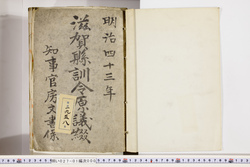 明治四十三年
滋賀縣訓令原議綴
知事官房文書係